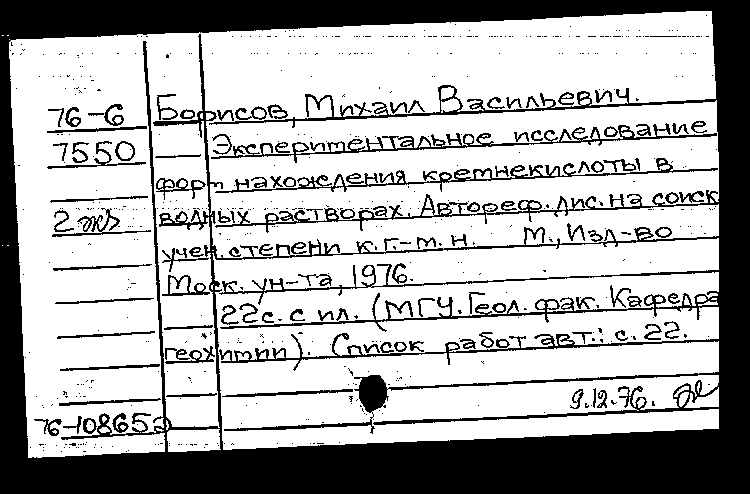 76-6 Борисов, Михаил Васильевич.
7550 Экспериментальное исследование
форм нахождения кремнекислоты в
2 экз водных растворах. Автореф. дис. на соиск.
учен. степени к. г.-м. н. М., Изд-во
Моск. ун-та, 1976.
22 с. с ил. (МГУ. Геол. фак. Кафедра
геохимии). Список работ авт.: с. 22.
9.12.76.
76-10865